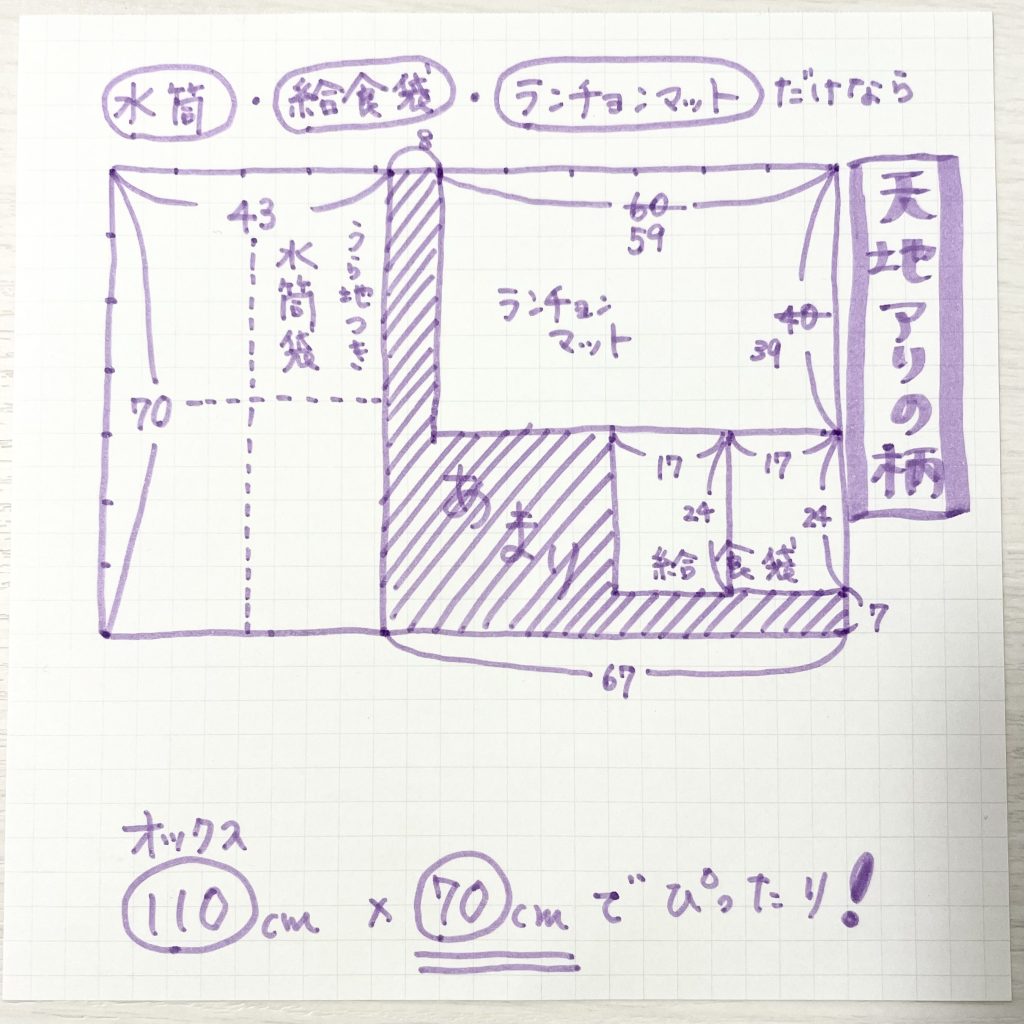 水筒・給食袋・ランチョンマットだけなら
8
43
60
59
うら地つき
水筒袋
ランチョン
マット
40
39
天地アリの柄
70
17
17
24
24
あまり
給食袋
7
67
オックス
110cm × 70cm でぴったり!